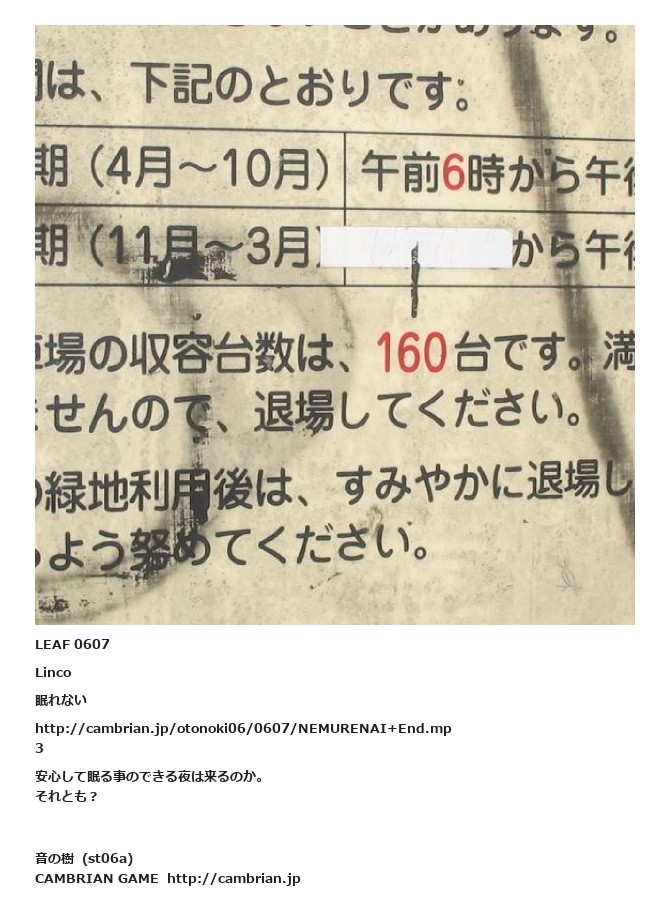 ことがあります。
は、下記のとおりです。
期（4月～10月） 午前6時から午後
期（11月～3月） から午後
場の収容台数は、160台です。満
せんので、退場してください。
緑地利用後は、すみやかに退場し
よう努めてください。
LEAF 0607
Linco
眠れない
http://cambrian.jp/otonoki06/0607/NEMURENAI+End.mp
3
安心して眠る事のできる夜は来るのか。
それとも？
音の樹 (st06a)
CAMBRIAN GAME http://cambrian.jp